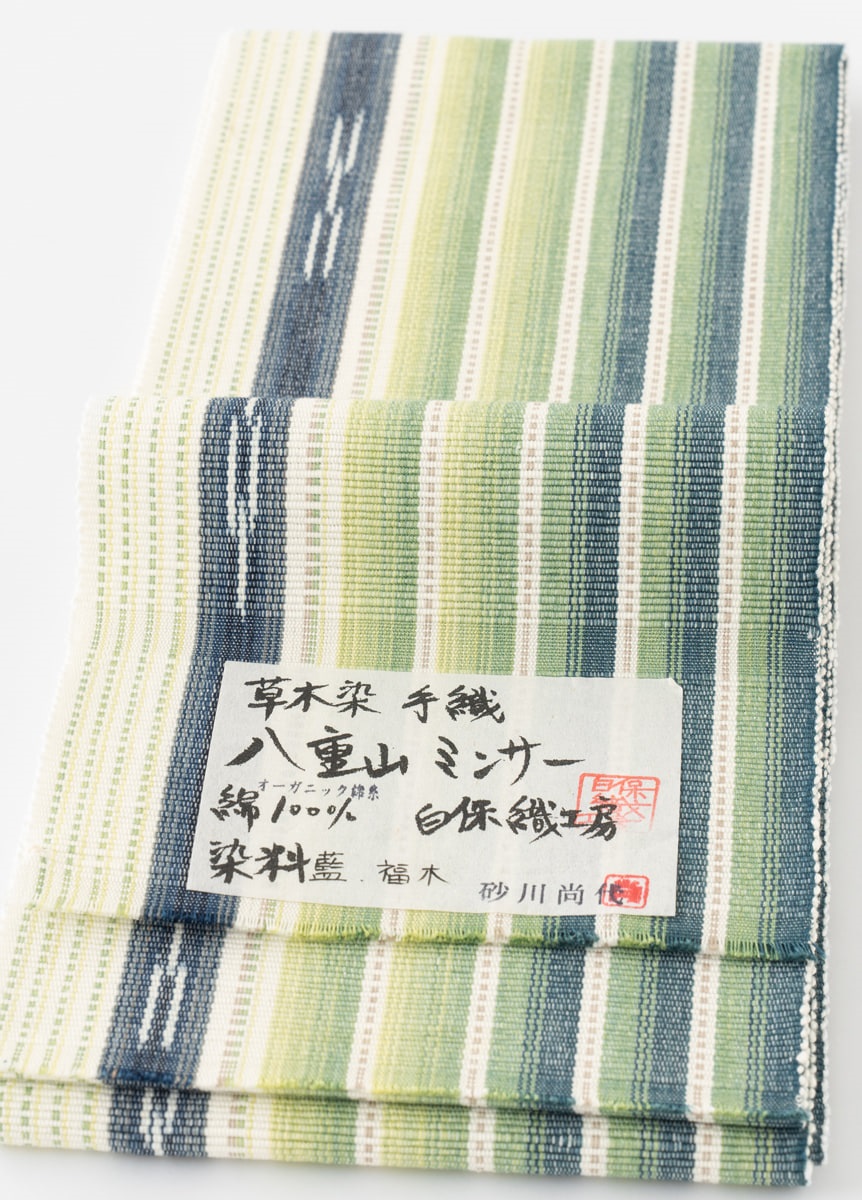 草木染 手織
八重山ミンサー
オーガニック綿糸
綿100% 白保織工房
染料藍.福木
砂川尚代